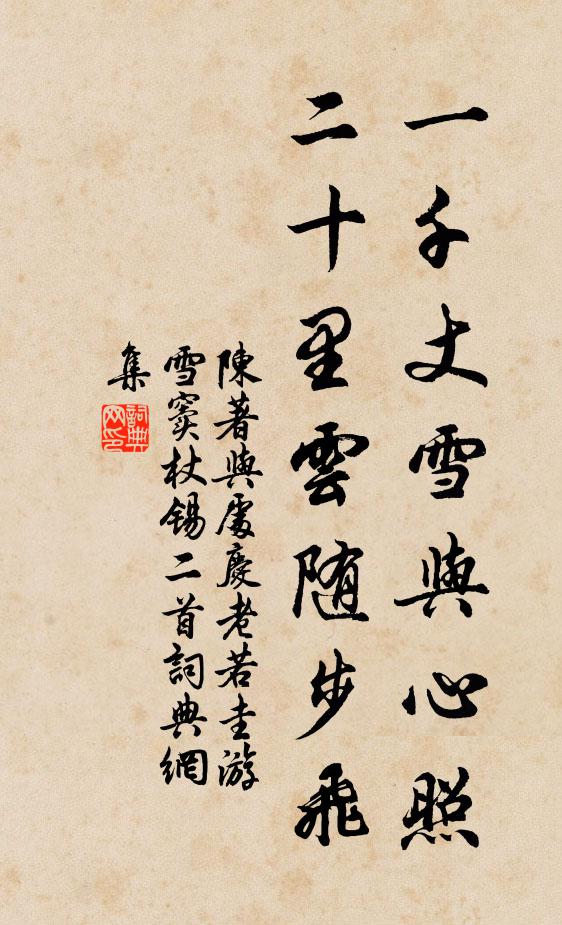 一千丈雪與心照
二十里雲随步飛
陳著與處慶老若圭游
雪竇杖锡二首詞典網
集
詞典网印